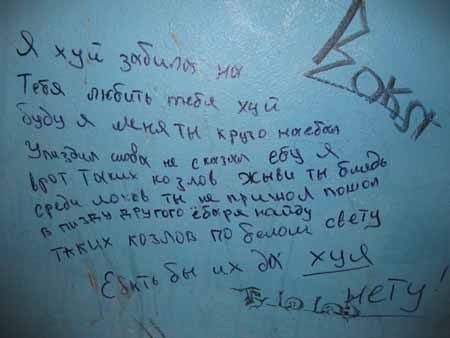 Я хуй забила на
Тебя любить тебя хуй
буду я меня ты круто наебал
Упиздил слова не сказал ебу я
врот таких козлов живи ты блядь
среди лохов ты не пришол пошол
в пизду другого ёбаря найду
таких козлов по белом свету
Ебать бы их да хуя
нету!
Вокя